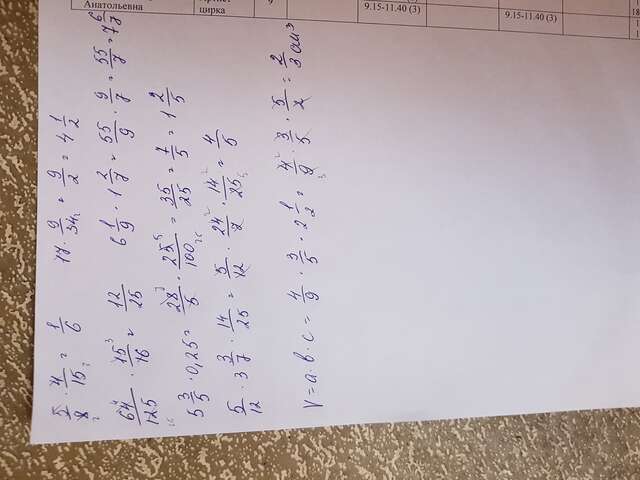 Анатольевна
цирка
9
9.15-11.40 (3)
9.15-11.40 (3)
5/8 · 4/15 = 1/6
17 · 9/34 = 9/2 = 4 1/2
64/125 · 15/16 = 12/25
6 1/9 · 1 2/7 = 55/9 · 9/7 = 55/7 = 7 6/7
5 3/5 · 0,25 = 28/5 · 25/100 = 35/25 = 7/5 = 1 2/5
5/12 · 3 3/7 · 14/25 = 5/12 · 24/7 · 14/25 = 4/5
V = a · b · c = 4/9 · 3/5 · 2 1/2 = 4/9 · 3/5 · 5/2 = 2/3 см³